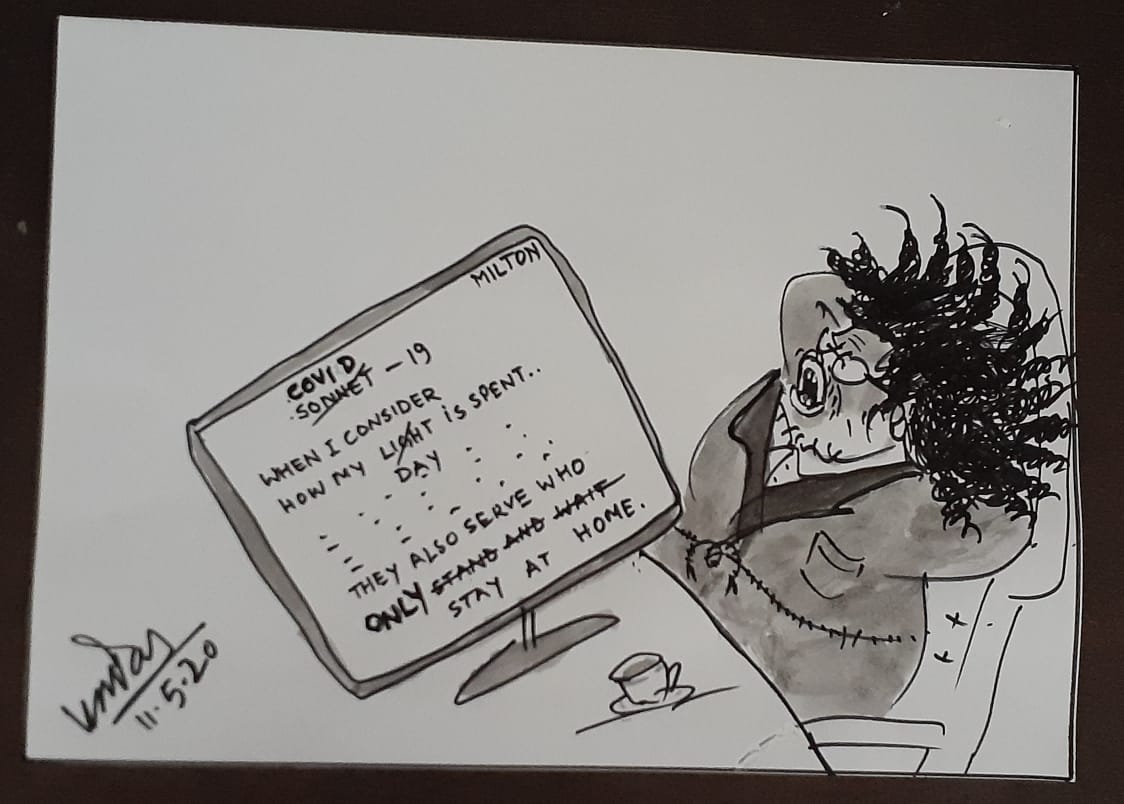 MILTON
COVID
SONNET - 19
WHEN I CONSIDER
HOW MY LIGHT IS SPENT..
DAY
THEY ALSO SERVE WHO
ONLY STAND AND WAIT
STAY AT HOME.
11.5.20